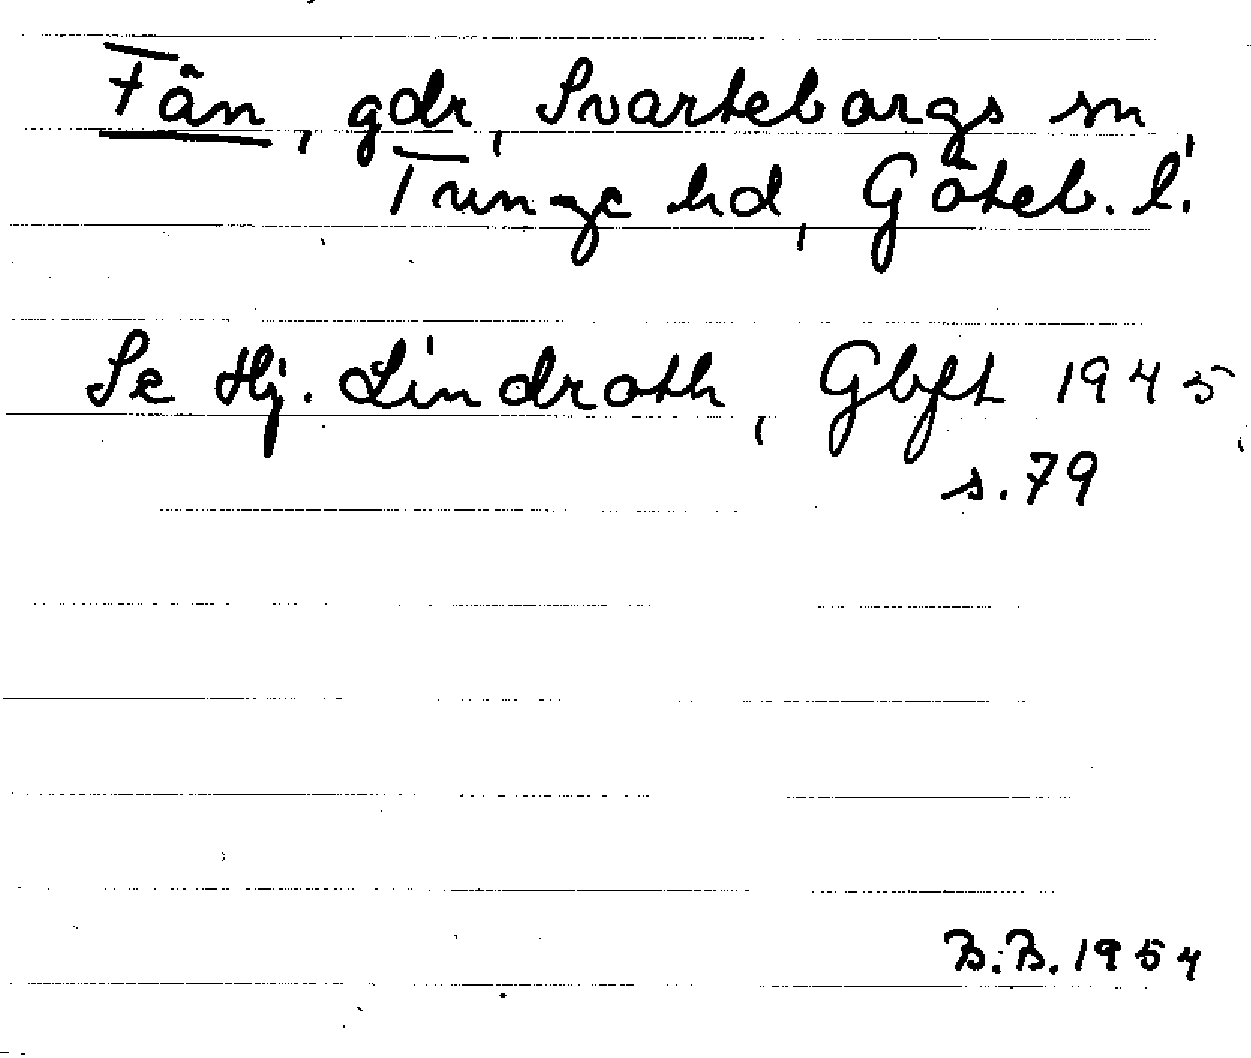 Fän, gdr, Svarteborgs sn,
Tunge hd, Göteb. l.
Se Hj. Lindroth, Gbft 1945,
s. 79
B.B. 1954